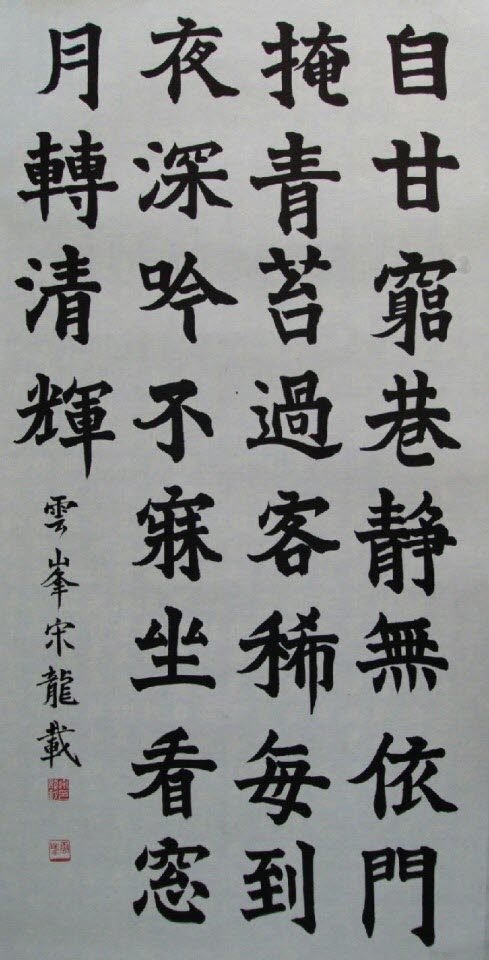 自甘窮巷静無依門
掩青苔過客稀每到
夜深吟不寐坐看窓
月轉清輝
雲峯宋龍載